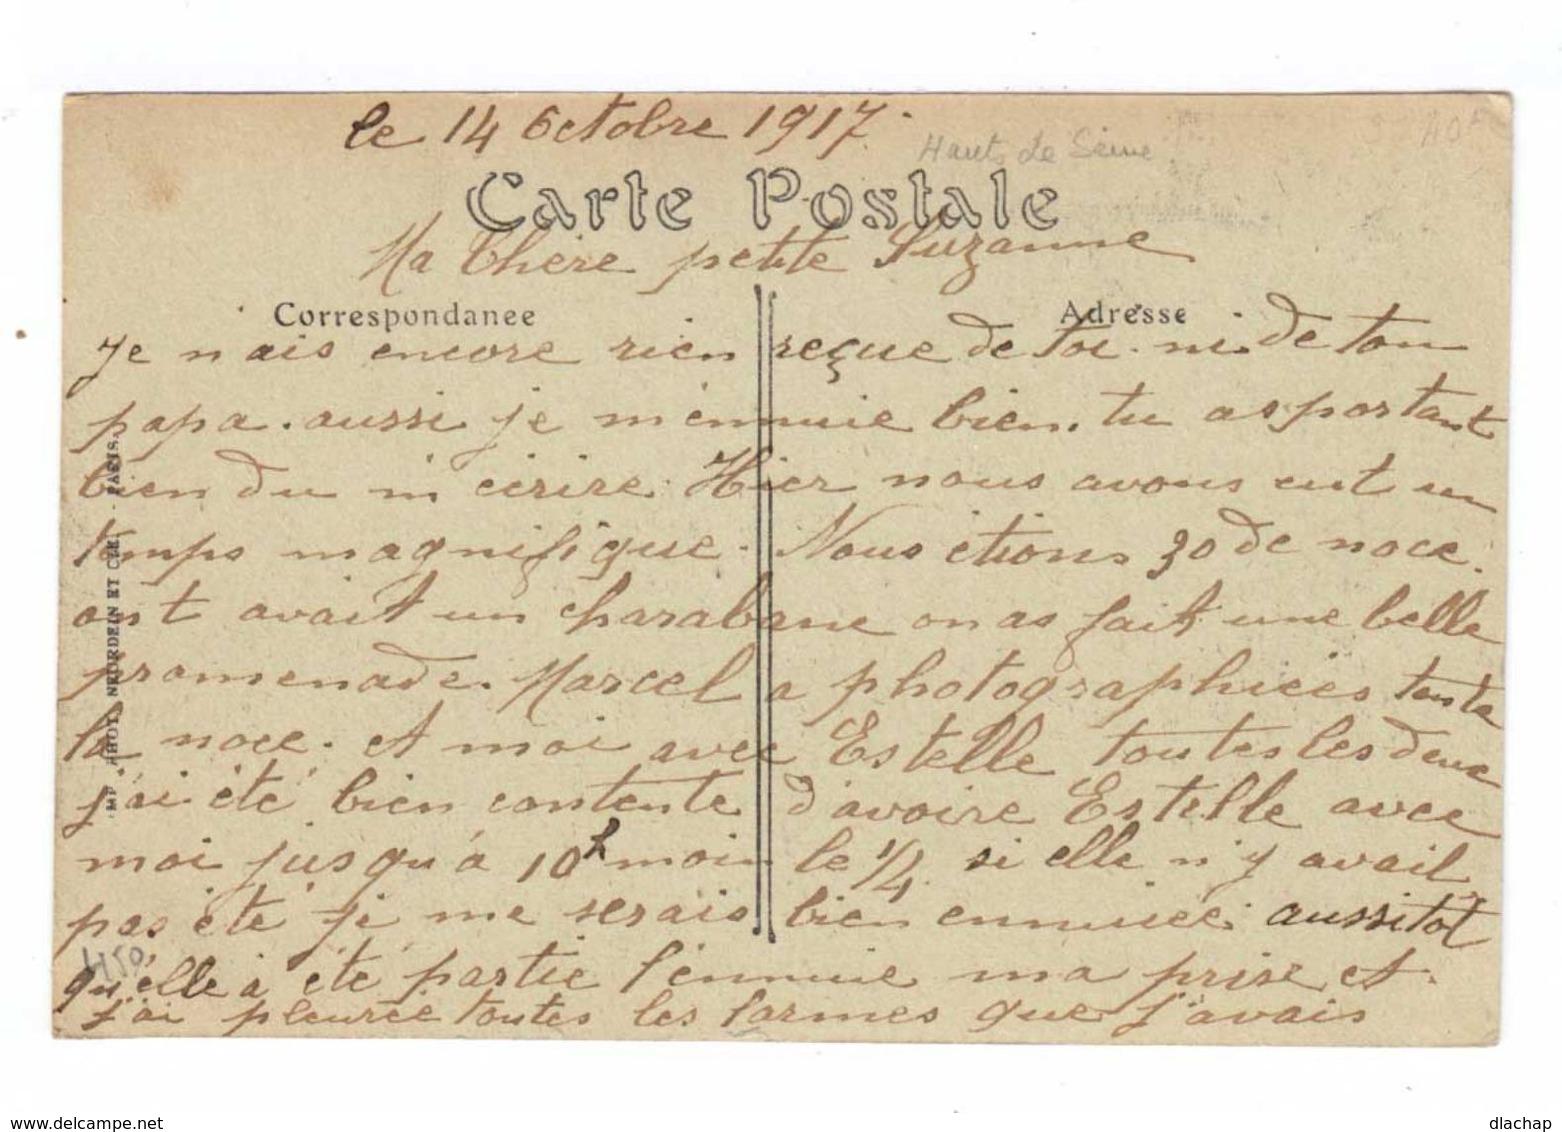 le 14 Octobre 1917.
Hauts de Seine
Carte Postale
Ma Chère petite Suzanne
Correspondance
Adresse
Je n ais encore rien reçue de toi. ni de ton
papa. aussi je m'ennuie bien. tu as portant
bien du m'écrire. Hier nous avons eut un
temps magnifique. Nous étions 30 de noce.
ont avait un charabanc on as fait une belle
promenade. Marcel a photographiées toute
la noce. et moi avec Estelle toutes les deux
j'ai été bien contente d'avoire Estelle avec
moi jusqu'à 10h moin le 1/4. si elle n'y avait
pas été je me serais bien ennuiée. aussitot
qu'elle à été partie l'ennuie ma prise et
j'ai pleurée toutes les larmes que j'avais
IMP. PHOT. NEURDEIN ET CIE. - PARIS.
450
www.delcampe.net
dlachap